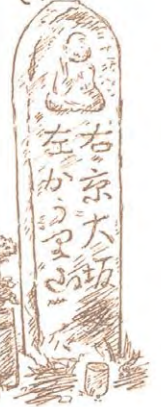 右京大坂
左かうや山